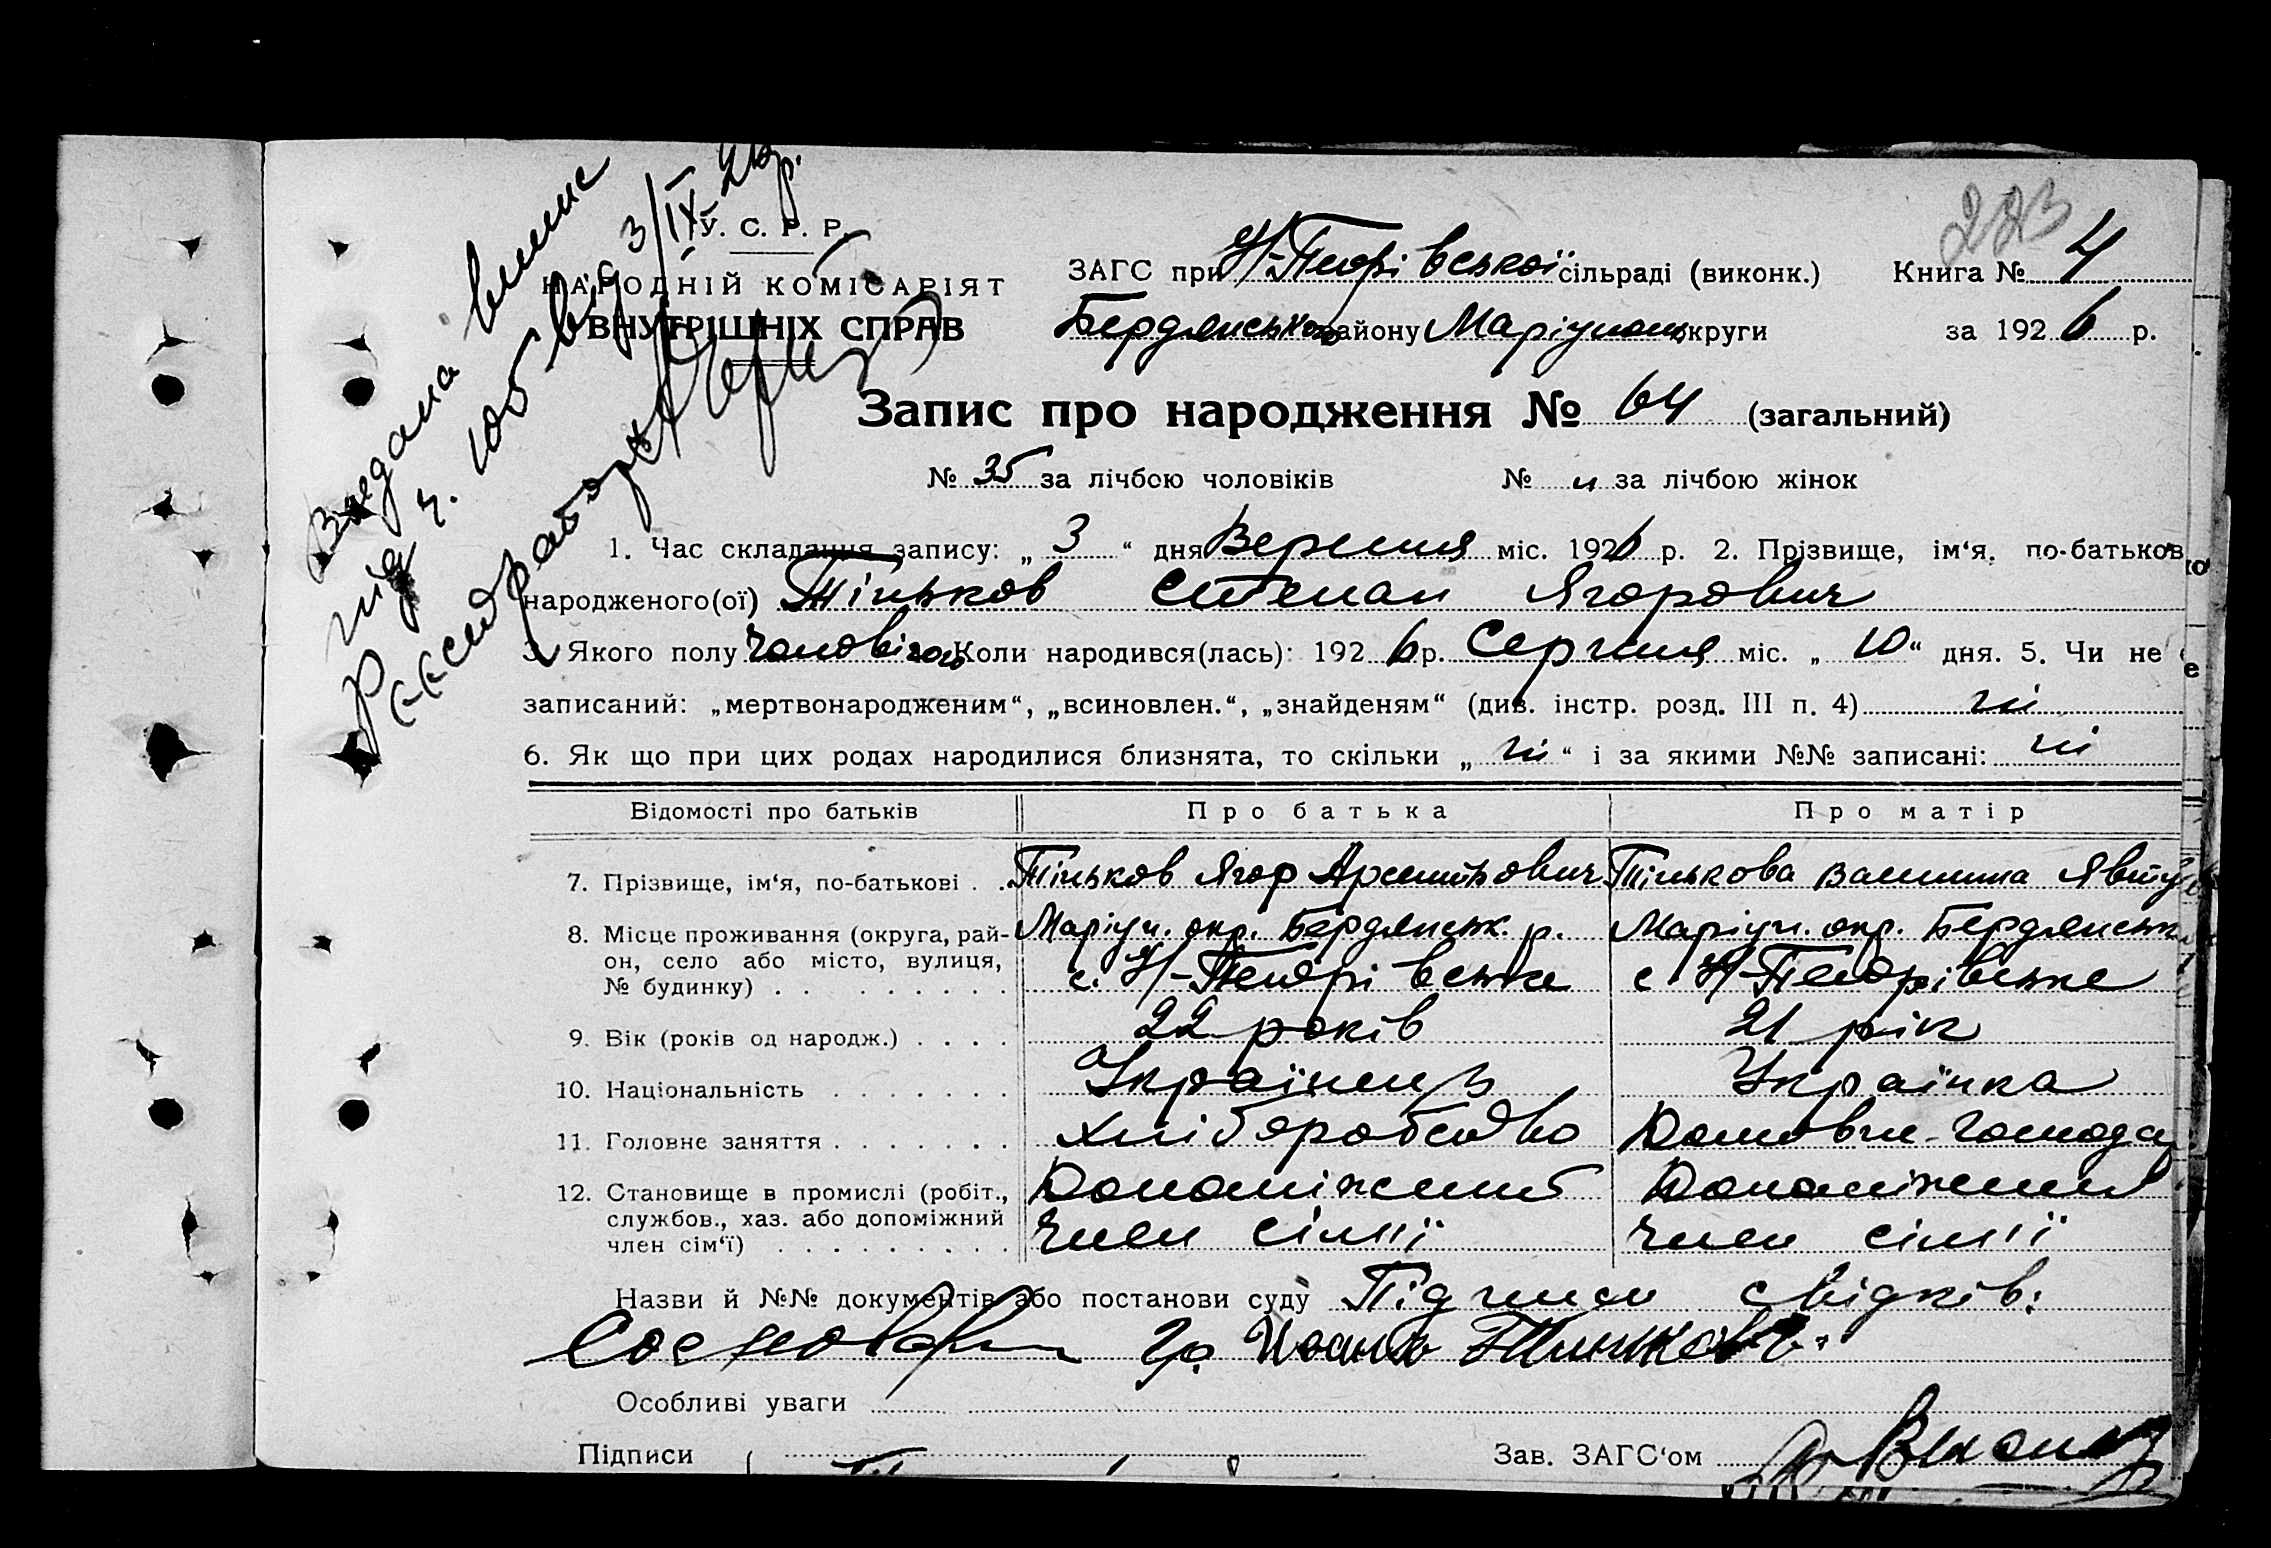 223
Видана виписка
під ч. 105 від 3/IX-26р.
У. С. Р. Р.
НАРОДНІЙ КОМІСАРІЯТ
ВНУТРІШНІХ СПРАВ
ЗАГС при Н-Петрівської сільраді (виконк.) Книга № 4
Бердянськ району Маріупольськ округи за 1926 р.
Запис про народження № 64 (загальний)
№ 35 за лічбою чоловіків № за лічбою жінок
1. Час складання запису: „ 3 “ дня Вересня міс. 1926 р. 2. Прізвище, ім‘я, по-батьков
народженого(ої) Тіньков Степан Ягорович
3. Якого полу Чоловічого Коли народився(лась): 1926 р. Серпня міс. „ 10 “ дня. 5. Чи не
записаний: „мертвонародженим“, „всиновлен.“, „знайденям“ (див. інстр. розд. III п. 4) ні
6. Як що при цих родах народилися близнята, то скільки „ ні “ і за якими №№ записані: ні
Відомості про батьків Про батька Про матір
7. Прізвище, ім‘я, по-батькові . . Тіньков Ягор Арсентьович Тінькова Явту
8. Місце проживання (округа, рай- Маріуп. окр. Бердянськ. р. Маріуп. окр. Бердянськ
он, село або місто, вулиця, с. Н-Петрівське с Н-Петрівське
№ будинку) . . . . . . . . .
9. Вік (років од народж.) . . . . 22 років 21 рік
10. Національність . . . . . . . Українець Українка
11. Головне заняття . . . . . . . Хліборобство Домовне господар
12. Становище в промислі (робіт., Допоміжний Допоміжний
службов., хаз. або допоміжний член сімії член сімії
член сім‘ї) . . . . . . . . .
Назви й №№ документів або постанови суду Підписи свідків:
гр. Иосиф
Особливі уваги
Підписи Зав. ЗАГС‘ом